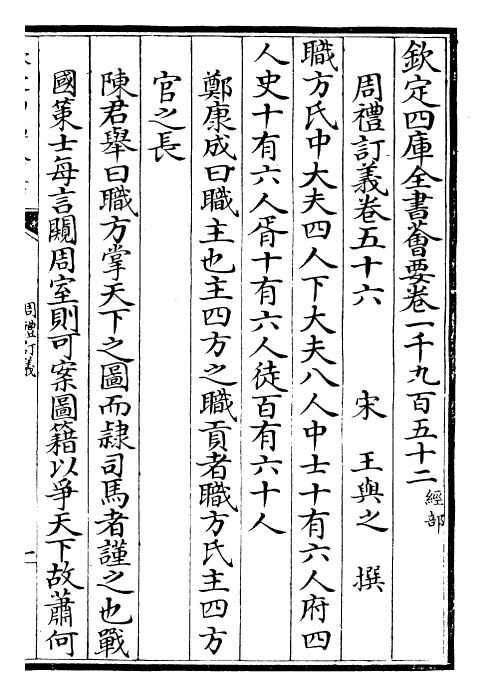 欽定四庫全書薈要卷一千九百五十二 經部
周禮訂義卷五十六 宋 王與之 撰
職方氏中大夫四人下大夫八人中士十有六人府四
人史十有六人胥十有六人徒百有六十人
鄭康成曰職主也主四方之職貢者職方氏主四方
官之長
陳君舉曰職方掌天下之圖而隷司馬者謹之也戰
國策士每言闚周室則可案圖籍以爭天下故蕭何
周禮訂義
一